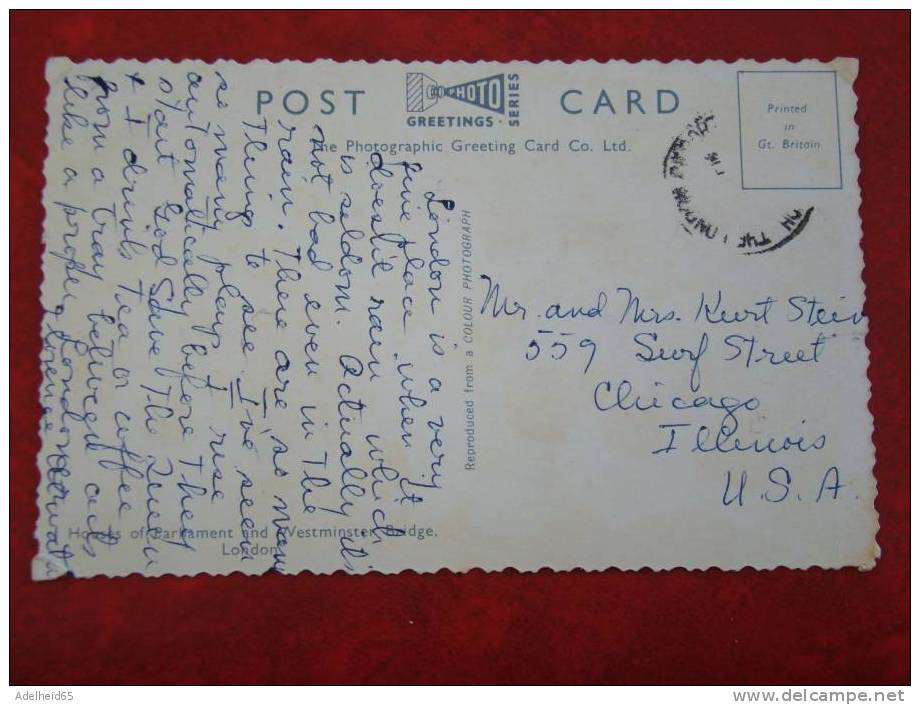 POST CARD
PHOTO
GREETINGS · SERIES
The Photographic Greeting Card Co. Ltd.
Printed
in
Gt. Britain
London is a very
fine place when it
doesn't rain which
is seldom. Actually it's
not bad even in the
rain. There are so many
Things to see. I've seen
so many plays I rise
automatically before they
start God Save The Queen
+ I drink tea or coffee
from a tray between acts
like a proper Londoner
Reproduced from a COLOUR PHOTOGRAPH
Mr. and Mrs. Kurt Stein
559 Surf Street
Chicago
Illinois
U.S.A.
Houses of Parliament and Westminster Bridge,
London
Adelheid65
delcampe.net